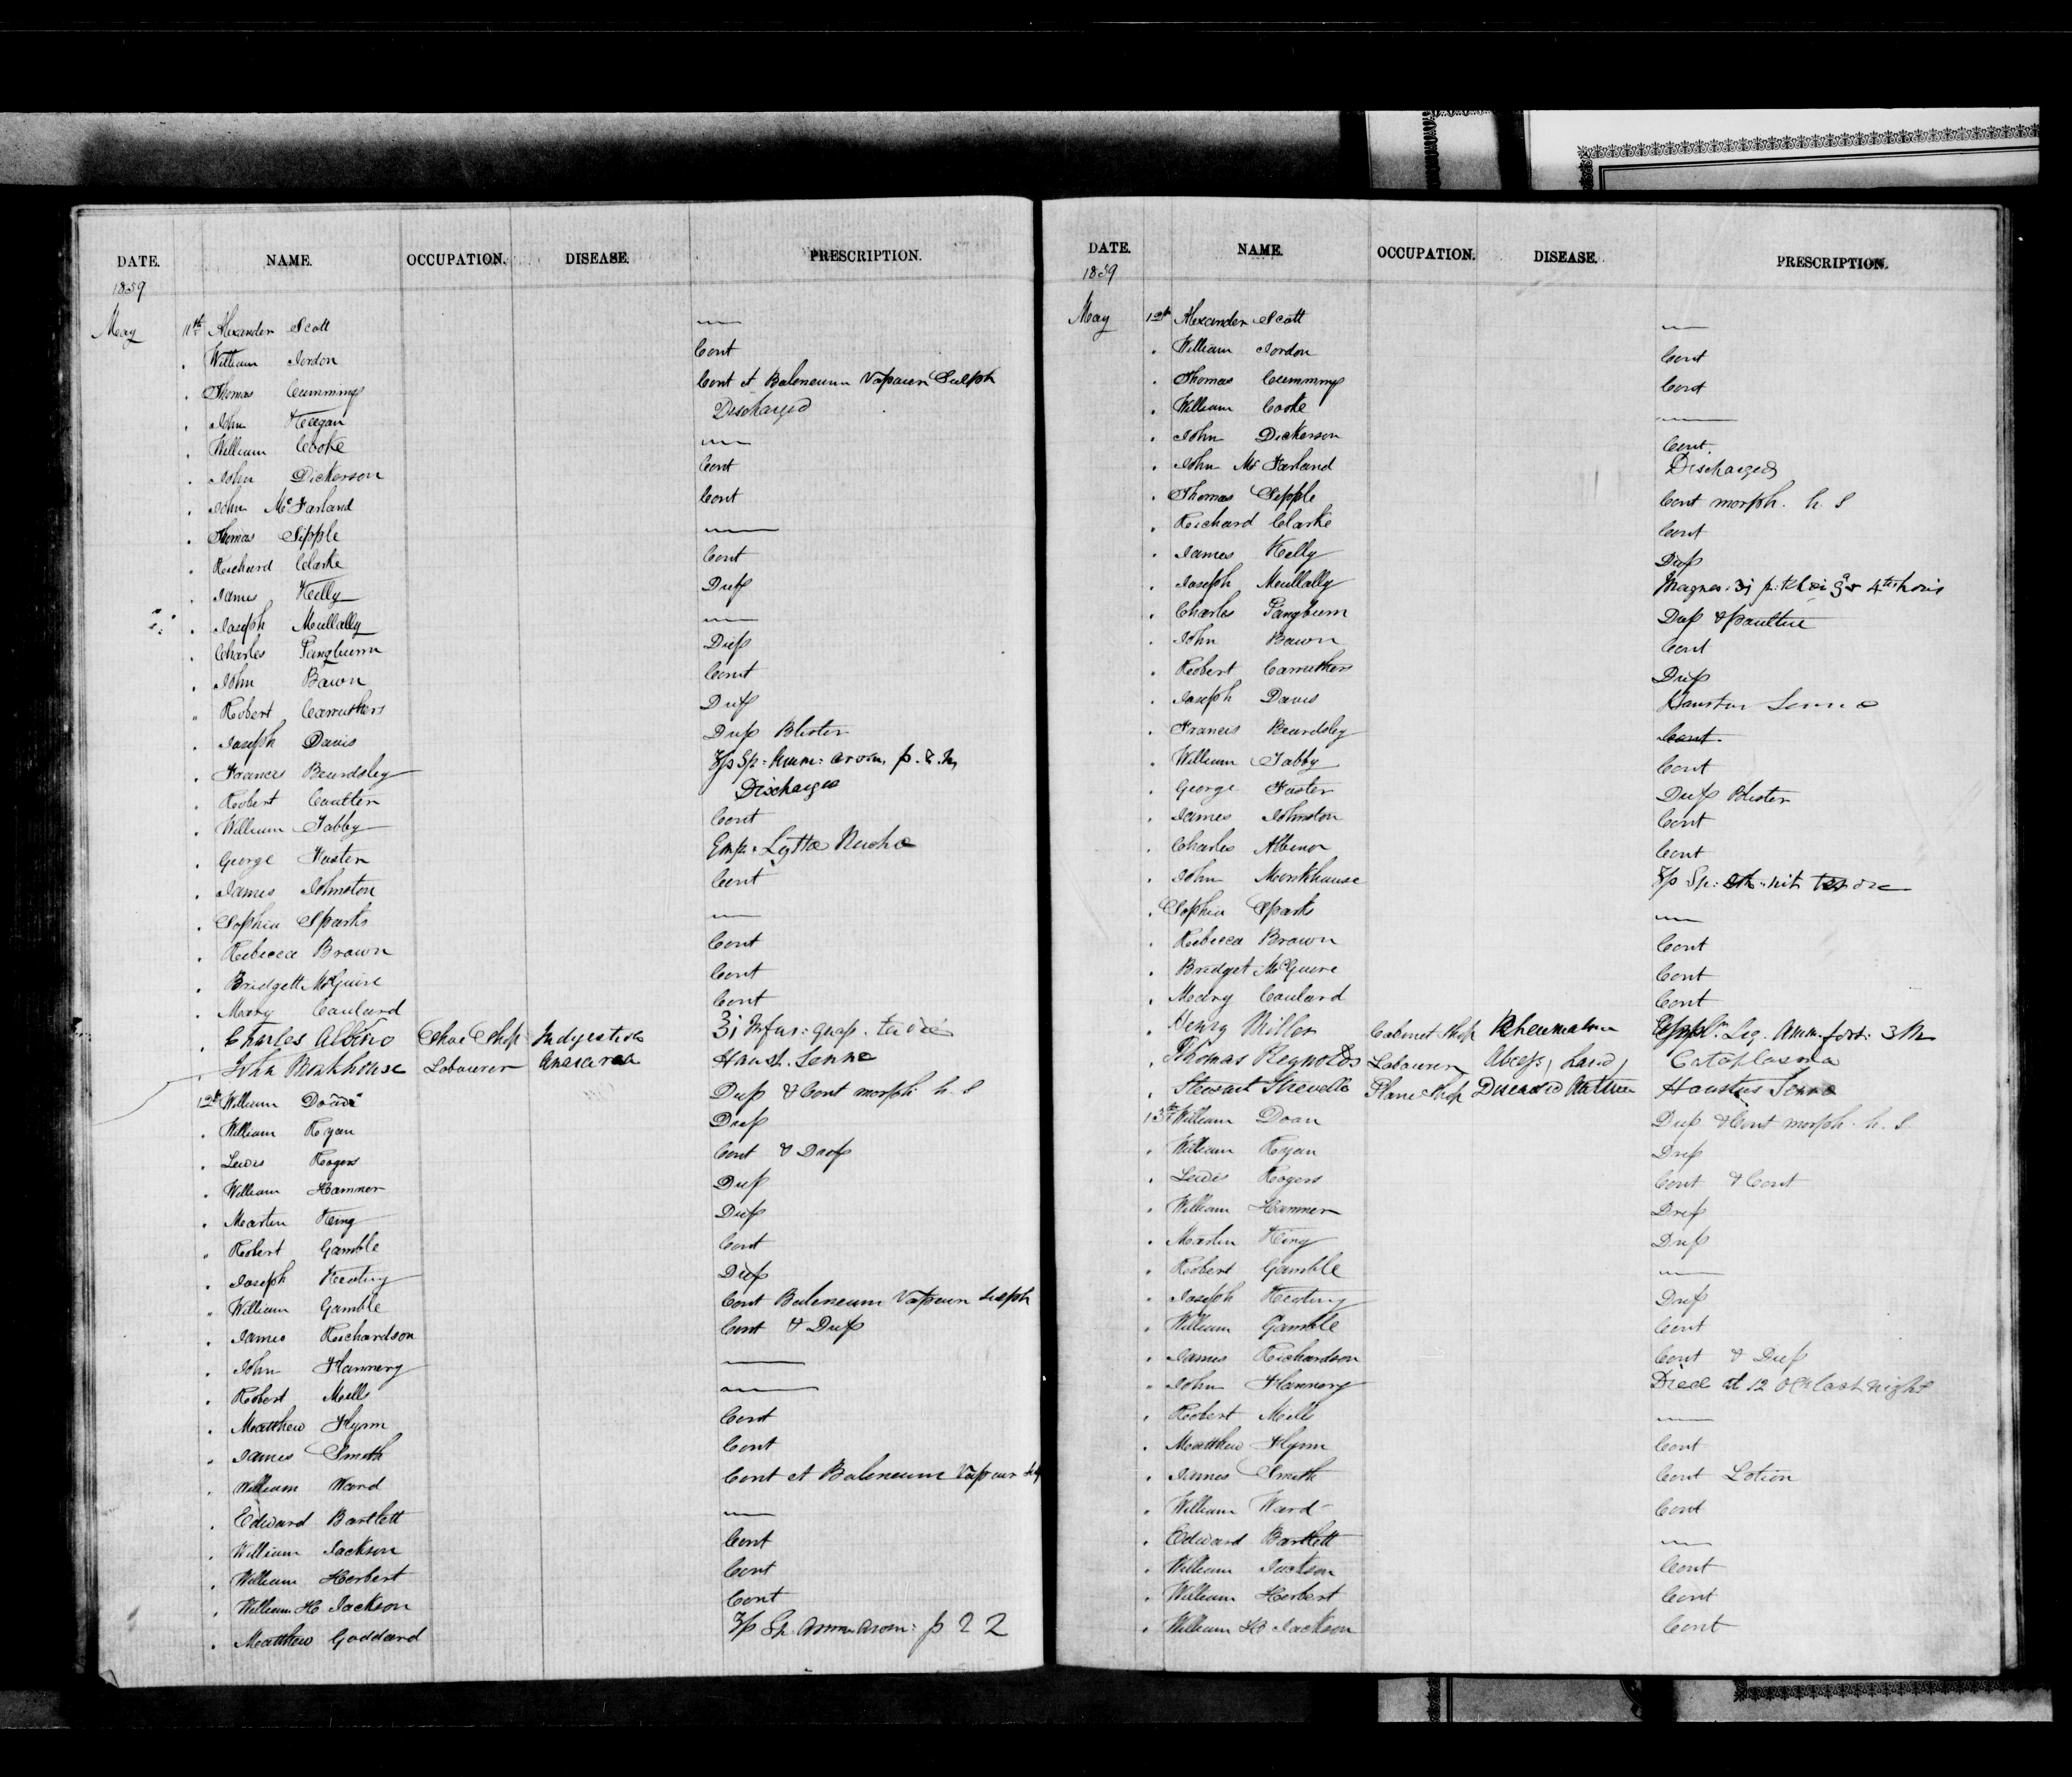 DATE. NAME. OCCUPATION. DISEASE. PRESCRIPTION.
1859
May 11th Alexander Scott —
" William Jordon Cont
" Thomas Cummings Cont et Baleneum Vapoum Sulph
" John Keegan Discharged
" William Cooke —
" John Dickerson Cont
" John McFarland Cont
" Thomas Sipple —
" Richard Clarke Cont
" James Kelly Dup
" Joseph Mullally —
" Charles Pangburn Dup
" John Bawn Cont
" Robert Carruthers Dup
" Joseph Davis Dup Blister
" Francis Beardsley Sp: Amm: arom, p. r. n,
" Robert Coulter Discharged
" William Tabby Cont
" George Foster Emp: Lyttae Nucha
" James Johnston Cont
" Sophia Sparks —
" Rebecca Brown Cont
" Bridgett McGuire Cont
" Mary Coulard Cont
" Charles Albino Shoe Shop Indigestion ʒi Infus: quas. ter die
" John Monkhouse Labourer Anasarca Haust. Senne
12th William Doan Dup & Cont morph h. S
" William Ryan Dup
" Lewis Rogers Cont & Dup
" William Hammer Dup
" Martin King Dup
" Robert Gamble Cont
" Joseph Keating Dup
" William Gamble Cont Baleneum Vapoum Sulph
" James Richardson Cont & Dup
" John Flannery —
" Robert Mills —
" Matthew Flynn Cont
" James Smith Cont
" William Ward Cont et Baleneum Vapour
" Edward Bartlett —
" William Jackson Cont
" William Herbert Cont
" William H Jackson Cont
" Matthew Goddard Sp Amm arom: p 2 2
DATE. NAME. OCCUPATION. DISEASE. PRESCRIPTION.
1859
May 12th Alexander Scott —
" William Jordon Cont
" Thomas Cummings Cont
" William Cooke —
" John Dickerson Cont.
" John McFarland Discharged
" Thomas Sipple Cont morph. h. S
" Richard Clarke Cont
" James Kelly Dup
" Joseph Mullally Magnes: ʒi 4th horis
" Charles Pangburn Dup & Paultice
" John Bawn Cont
" Robert Carruthers Dup
" Joseph Davis Haustus Senna
" Francis Beardsley Cont
" William Tabby Cont
" George Foster Dup Blister
" James Johnston Cont
" Charles Albinor Cont
" John Monkhouse Sp: nit ter die
" Sophia Sparks —
" Rebecca Brown Cont
" Bridget McGuire Cont
" Mary Coulard Cont
" Henry Miller Cabinet Shop Rheumatism Liq. Amm. fort:
" Thomas Reynolds Labourer Abcess, hand, Cataplasma
" Stewart Strevells Plane Shop Diseased Haustus Senna
13th William Doan Dup & Cont morph. h. S
" William Ryan Dup
" Lewis Rogers Cont & Cont
" William Hammer Dup
" Martin King Dup
" Robert Gamble —
" Joseph Keating Dup
" William Gamble Cont
" James Richardson Cont & Dup
" John Flannery Died at 12 Oclk last night
" Robert Mills —
" Matthew Flynn Cont
" James Smith Cont Lotion
" William Ward Cont
" Edward Bartlett —
" William Jackson Cont
" William Herbert Cont
" William H Jackson Cont